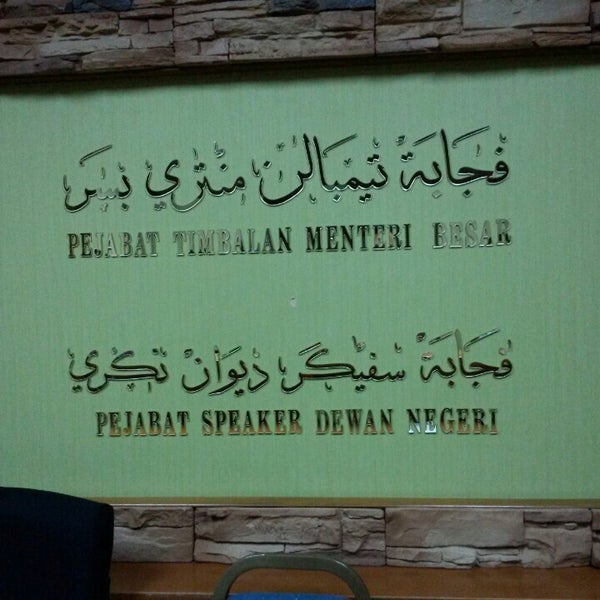 فجابة تيمبالن منتري بسر
PEJABAT TIMBALAN MENTERI BESAR
فجابة سفيكر ديوان نكري
PEJABAT SPEAKER DEWAN NEGERI